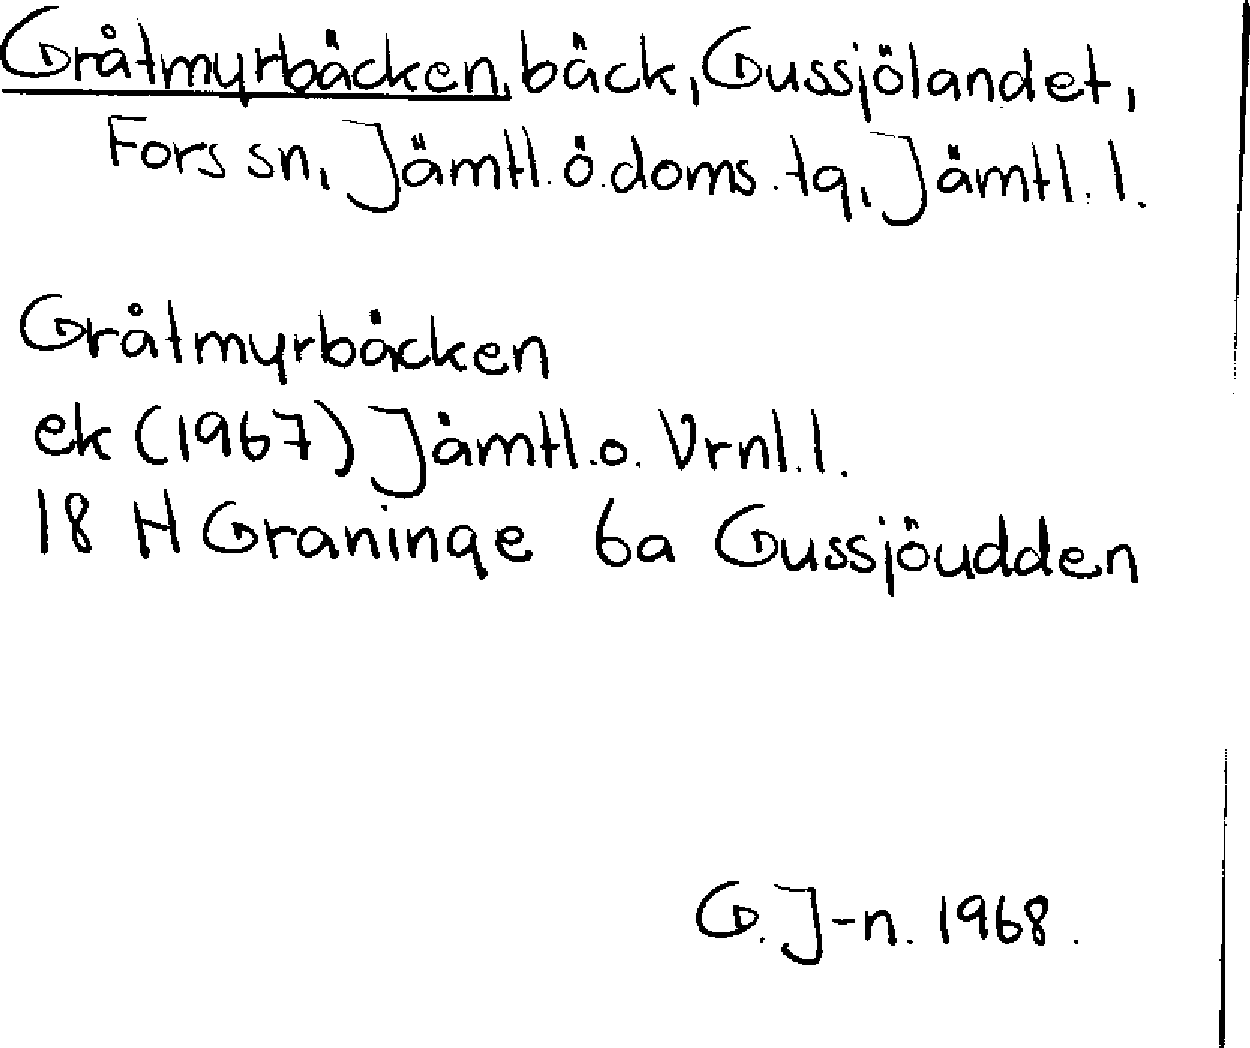 Gråtmyrbäcken, bäck, Gussjölandet,
Fors sn, Jämtl. ö. doms. tg, Jämtl. l.
Gråtmyrbäcken
ek (1967) Jämtl. o. Vrnl. l.
18 H Graninge 6a Gussjöudden
G. J-n. 1968.